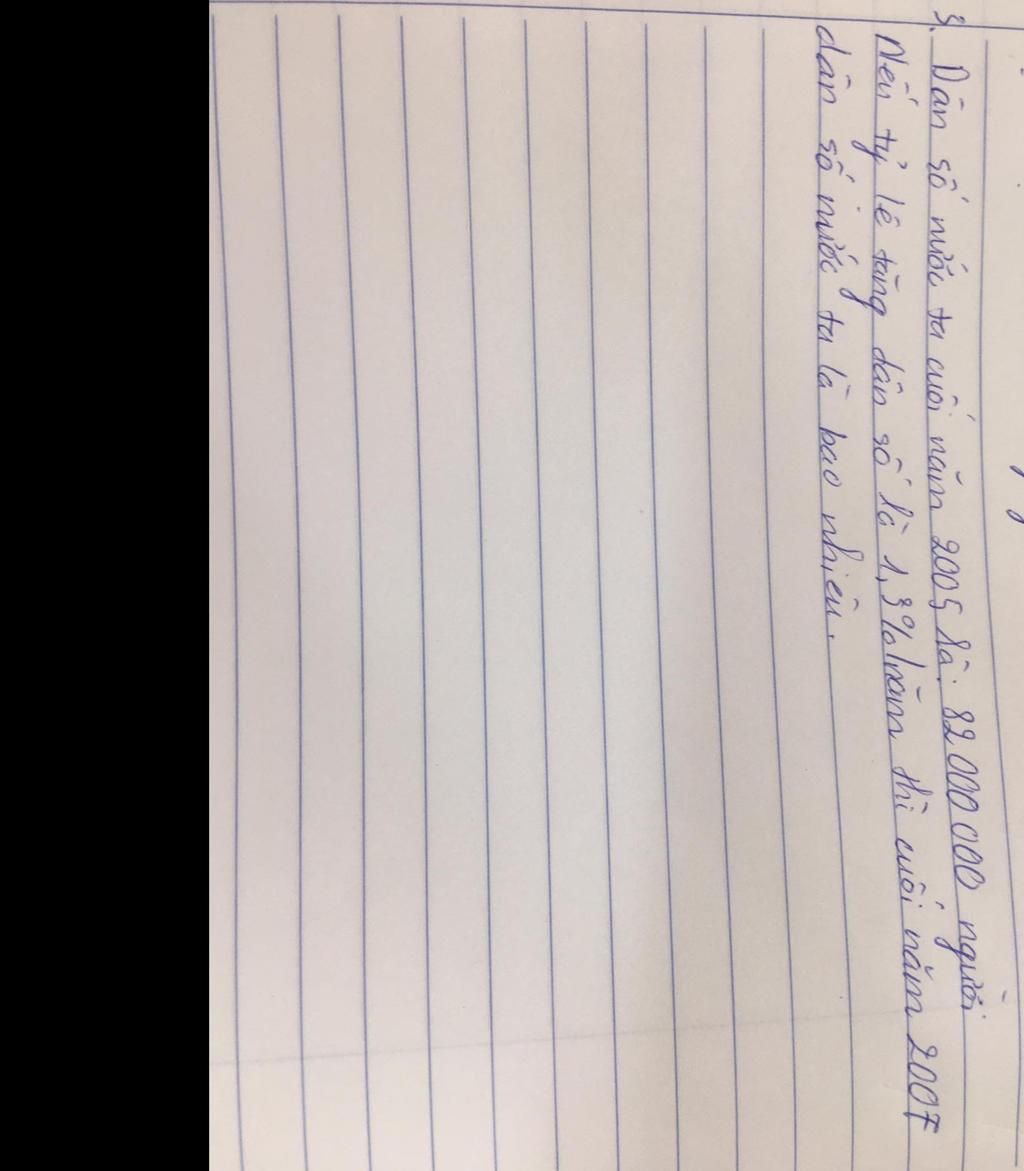 3. Dân số nước ta cuối năm 2005 là: 82 000 000 người
Nếu tỷ lệ tăng dân số là 1,3%/năm thì cuối năm 2007
dân số nước ta là bao nhiêu.